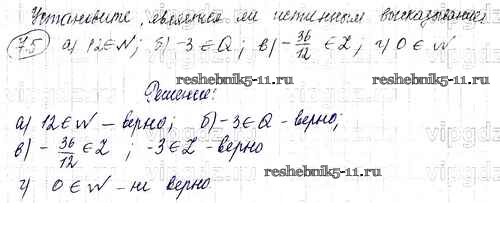 Установите, является ли истинным высказывание:
7.5 а) 12∈N; б) -3∈Q; в) -36/12∈Z; г) 0∈N.
reshebnik5-11.ru
reshebnik5-11.ru
Решение:
а) 12∈N – верно; б) -3∈Q – верно;
в) -36/12∈Z; -3∈Z – верно
reshebnik5-11.ru
г) 0∈N – не верно.